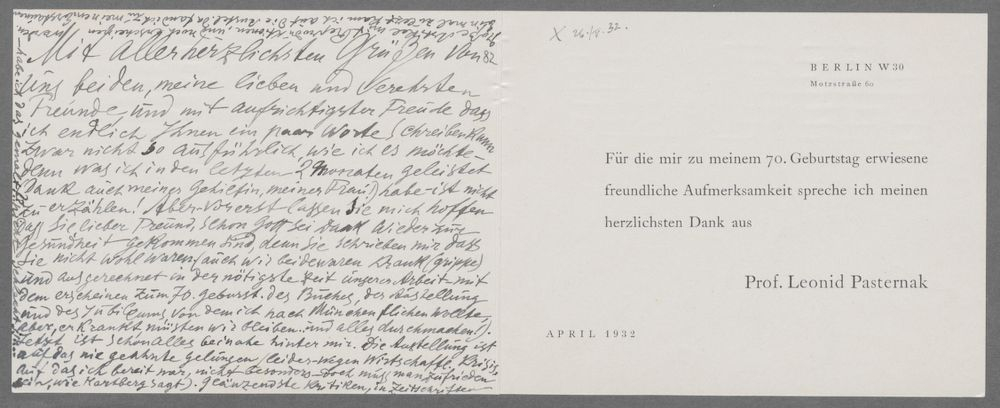 Mit allerherzlichsten Grüßen von
Uns beiden, meine lieben und verehrten
Freunde, und mit aufrichtigster Freude dass
ich endlich Ihnen ein paar Worte schreiben kann
zwar nicht so ausführlich wie ich es möchte-
denn was ich in den letzten 2 Monaten geleistet
(Dank auch meiner Gehilfin, meiner Frau) habe - ist nicht
zu erzählen! Aber vorerst lassen Sie mich hoffen
dass Sie lieber Freund, schon Gott sei Dank wieder zur
Gesundheit gekommen sind, denn Sie schrieben mir dass
Sie nicht wohl waren, (auch wir beide waren krank (grippe)
und ausgerechnet in der nötigste Zeit unserer Arbeit - mit
dem erscheinen zum 70. geburst. des Buches, der Austellung
und des Jubiläums von dem ich nach München flichen wollte,
aber, erkrankt müssten wir bleiben und alles durchmachen!).
Jetzt ist schon alles beinahe hinter mir. Die Austellung ist
auf das nie geahnte gelungen (leider - wegen Wirtschaftl. Krisis,
auf das ich bereit war, nicht besonders - doch muss man zufrieden
sein, wie Hartberg sagt). Glänzendste Kritiken, in Zeitschriften
X 26/V. 32.
BERLIN W 30
Motzstraße 60
Für die mir zu meinem 70. Geburtstag erwiesene
freundliche Aufmerksamkeit spreche ich meinen
herzlichsten Dank aus
Prof. Leonid Pasternak
APRIL 1932